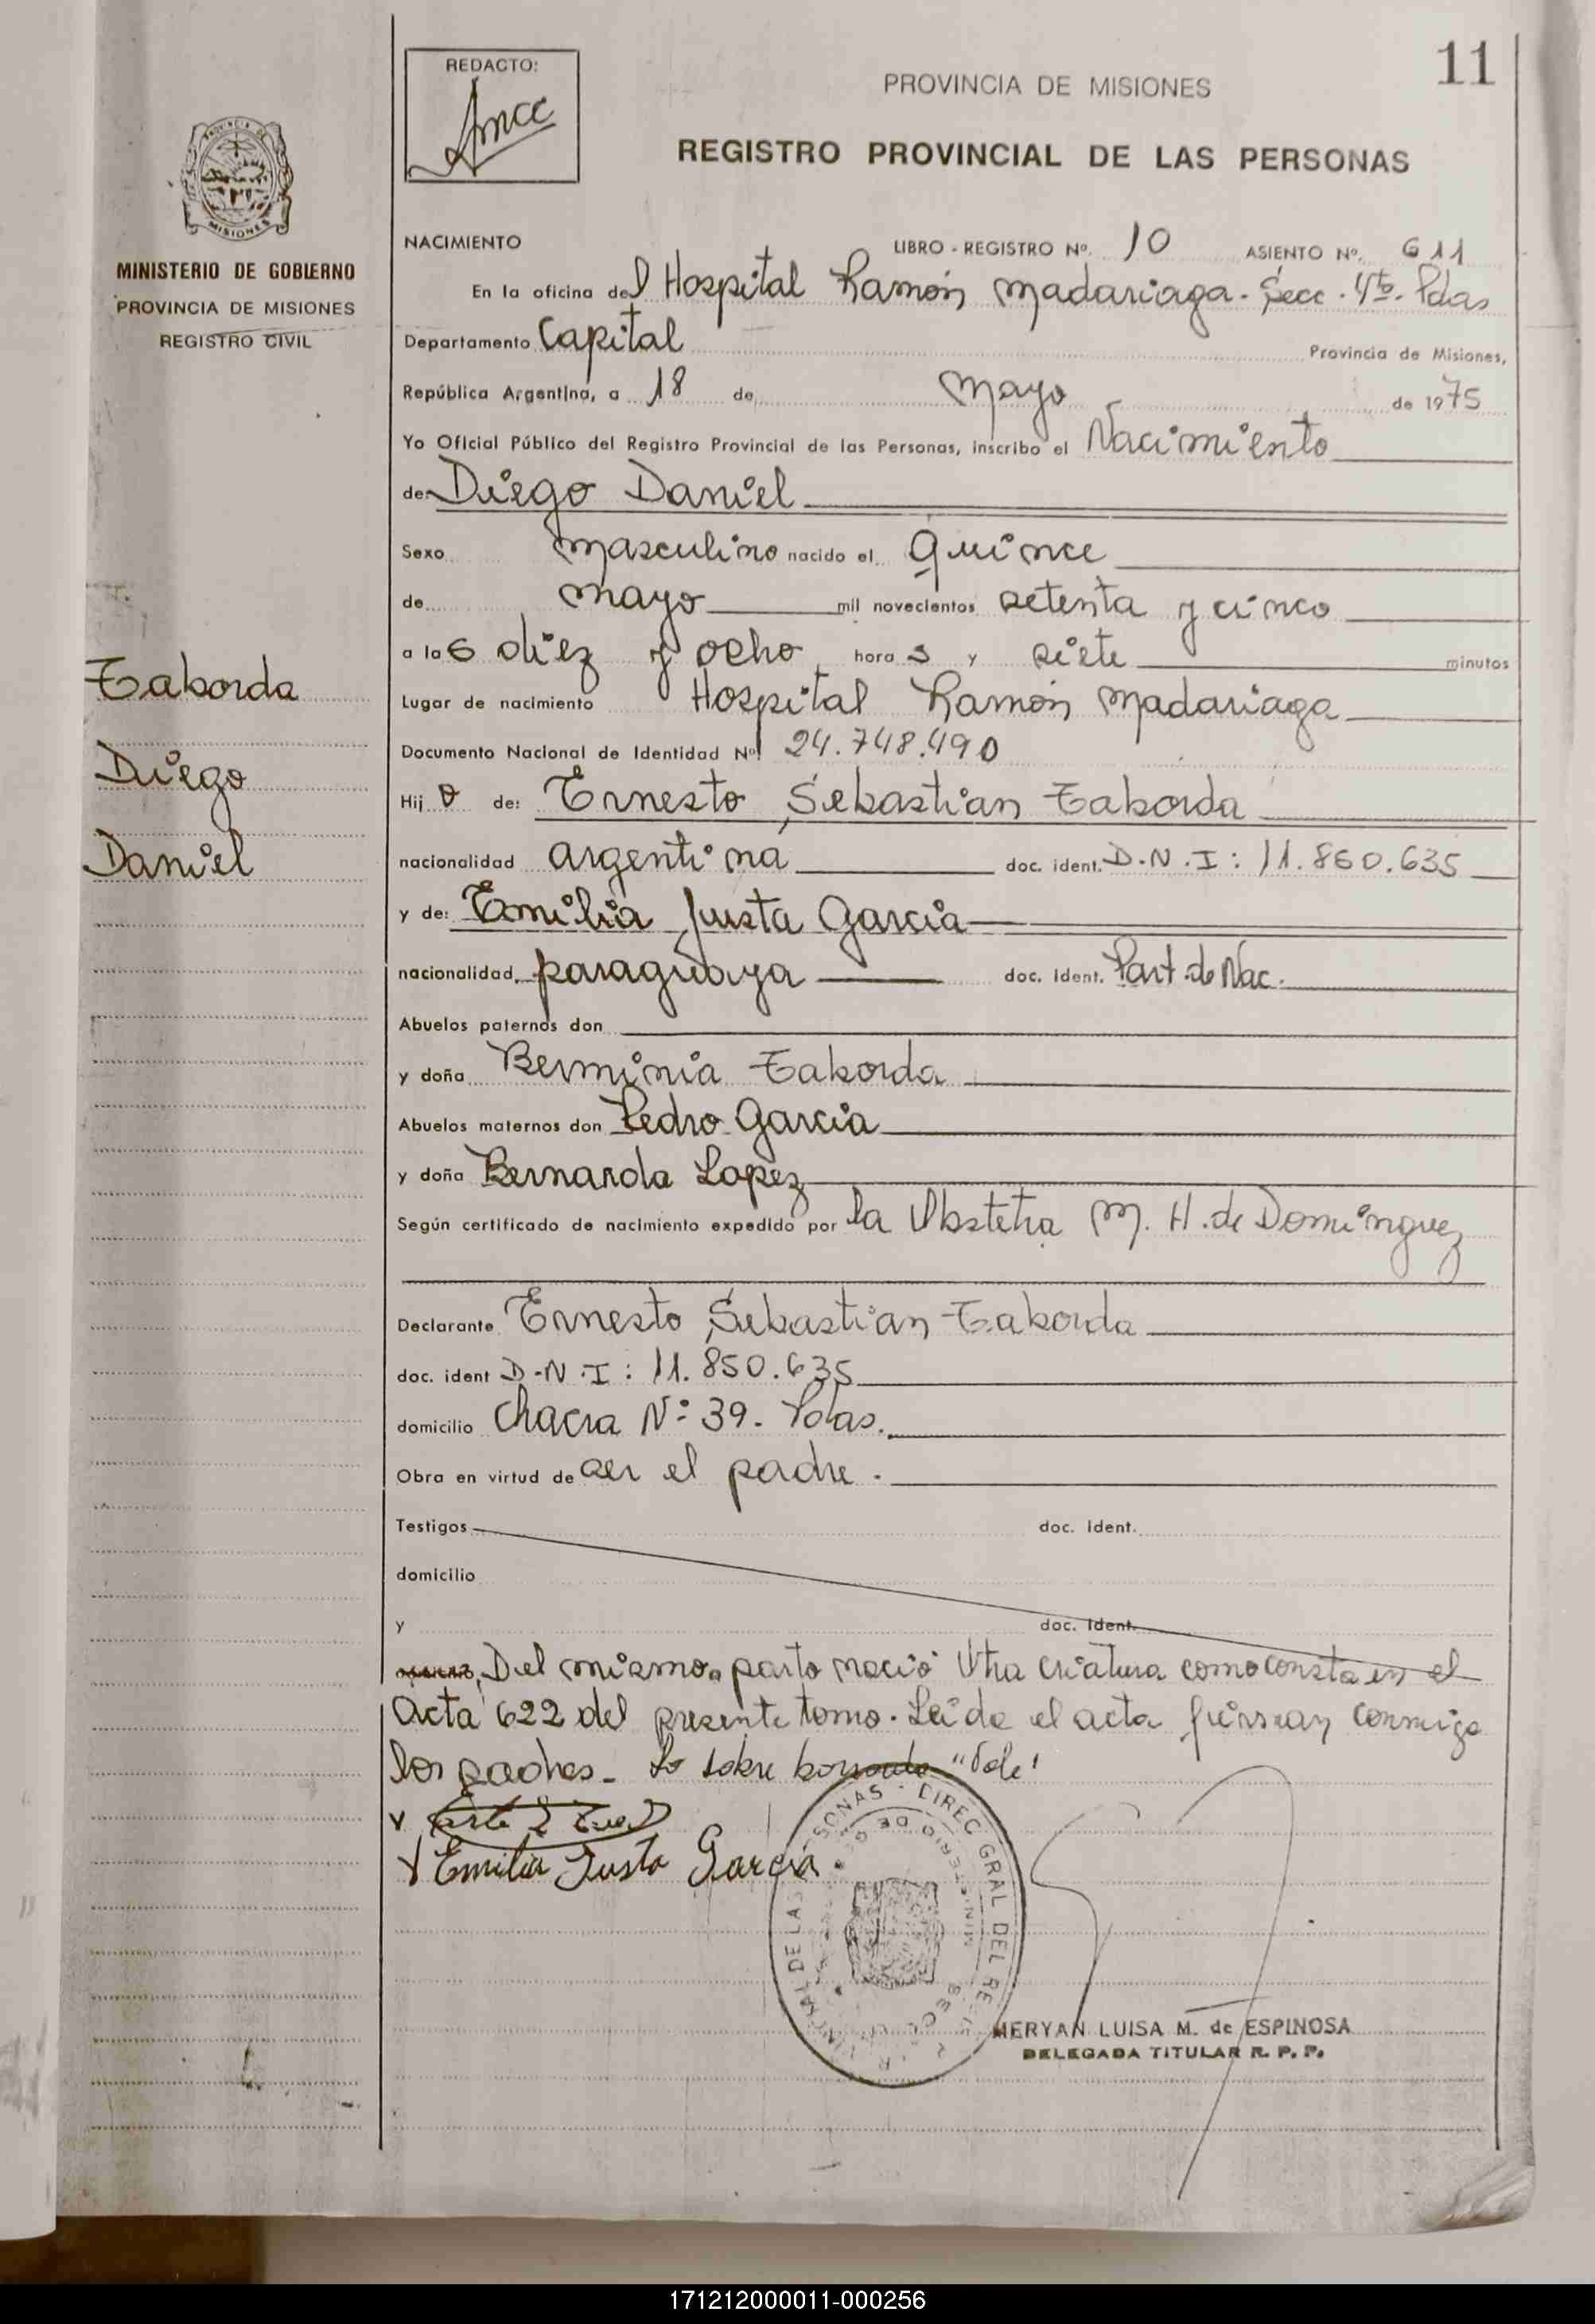 11
REDACTO:
PROVINCIA DE MISIONES
REGISTRO PROVINCIAL DE LAS PERSONAS
PROVINCIA DE
MISIONES
MINISTERIO DE GOBIERNO
PROVINCIA DE MISIONES
REGISTRO CIVIL
Taborda
Diego
Daniel
NACIMIENTO LIBRO - REGISTRO Nº. 10 ASIENTO Nº. 611
En la oficina del Hospital Ramón Madariaga. Secc. 4ta. Pdas
Departamento Capital Provincia de Misiones,
República Argentina, a 18 de Mayo de 1975
Yo Oficial Público del Registro Provincial de las Personas, inscribo el Nacimiento
de Diego Daniel
Sexo masculino nacido el Quince
de mayo mil novecientos setenta y cinco
a las diez y ocho horas y siete minutos
Lugar de nacimiento Hospital Ramón Madariaga
Documento Nacional de Identidad Nº 24.748.490
Hijo de: Ernesto Sebastian Taborda
nacionalidad argentina doc. ident. D.N.I: 11.850.635
y de: Emilia Justa Garcia
nacionalidad paraguaya doc. ident. Part. de Nac.
Abuelos paternos don
y doña Berminia Taborda
Abuelos maternos don Pedro Garcia
y doña Bernarda Lopez
Según certificado de nacimiento expedido por la Obstetra M. H. de Dominguez
Declarante Ernesto Sebastian Taborda
doc. ident D.N.I: 11.850.635
domicilio Chacra Nº 39. Pdas.
Obra en virtud de ser el padre.
Testigos doc. ident.
domicilio
y doc. ident.
Del mismo parto nació Otra criatura como consta en el
Acta 622 del presente tomo. Leida el acta firman conmigo
los padres. Lo sobre borrado "Vale"
x
x Emilia Justa Garcia
DIREC. GRAL DEL
MINISTERIO DE
MERYAN LUISA M. de ESPINOSA
DELEGADA TITULAR R. P. P.
171212000011-000256